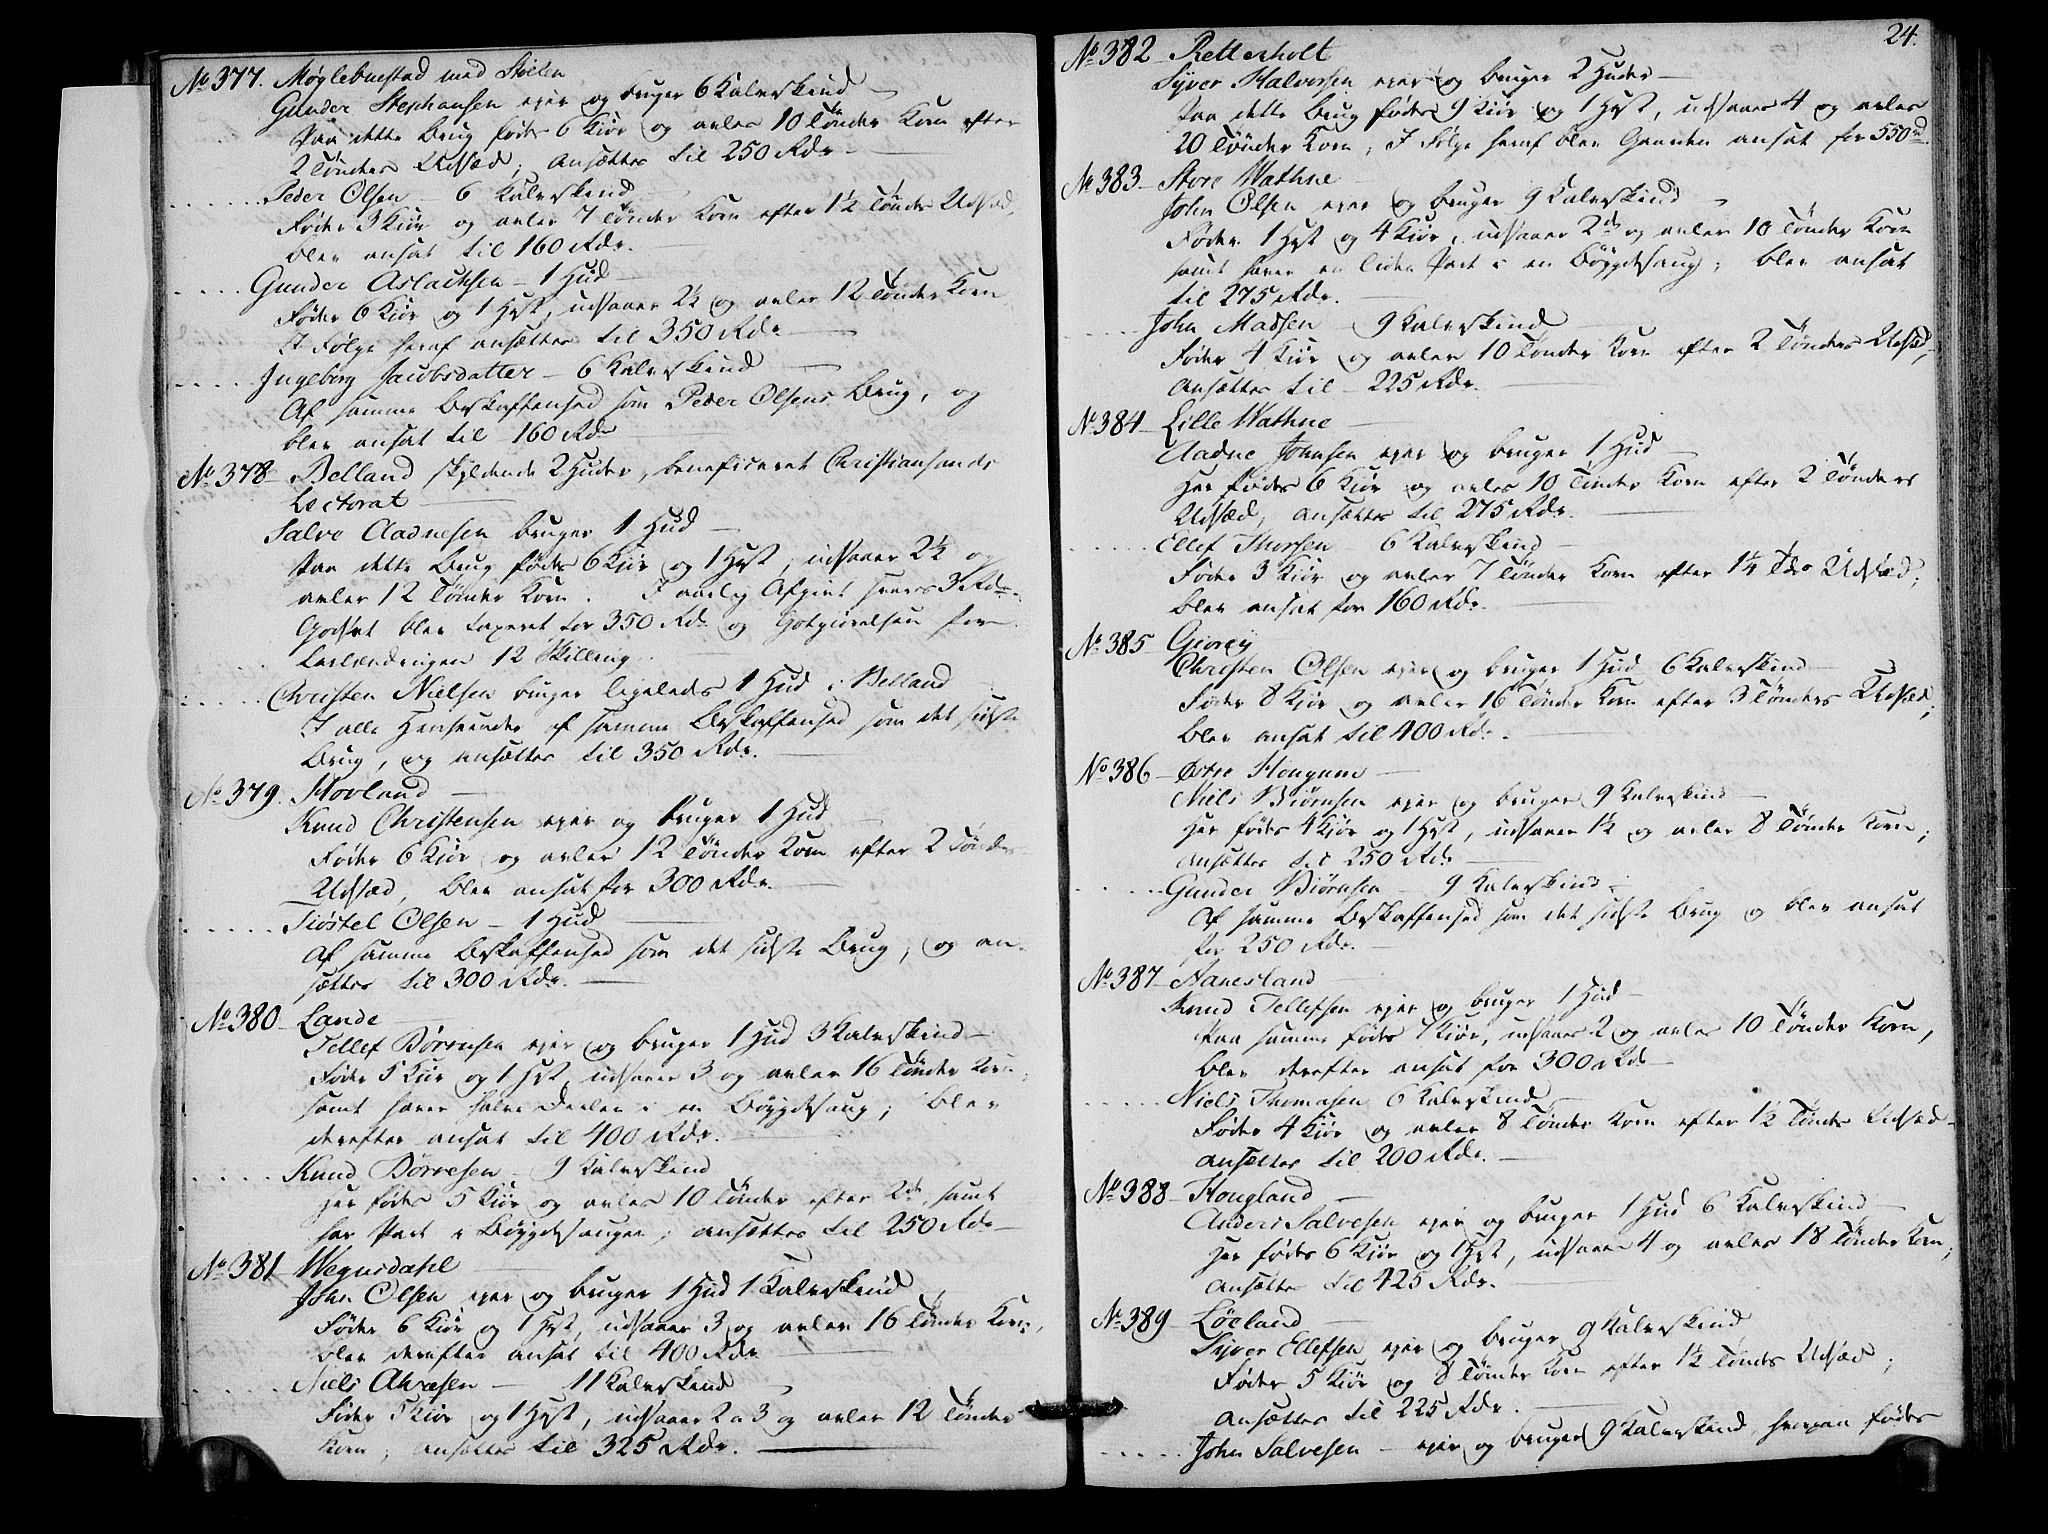 No 377. Møglebuestad med Stølen
Gunder Stephansen ejer og bruger 6 Kalvskind
Paa dette Brug fødes 6 Kiør og avles 10 Tønder Korn efter
2 Tønders Udsæd; ansættes til 250 Rdr.
Peder Olsen – 6 Kalvskind
Føder 3 Kiør og avler 7 Tønder Korn efter 1½ Tøndes Udsæd,
blev ansat til 160 Rdr.
Gunder Aslachsen – 1 Hud
Føder 6 Kiør og 1 Hest, udsaaer 2½ og avler 12 Tønder Korn
I Følge heraf ansættes til 350 Rdr
Ingeborg Jacobsdatter – 6 Kalvskind
Af samme Beskaffenhed som Peder Olsens Brug, og
blev ansat til 160 Rdr
No 378 – Belland skyldende 2 Huder, beneficeret Christiansands
Lectorat
Salve Aadnesen bruger 1 Hud
Paa dette Brug fødes 6 Kiør og 1 Hest, udsaaer 2½ og
avler 12 Tønder Korn. I aarlig Afgivt svares 3 Rdr.
Godset blev taxeret for 350 Rdr og Godtgiørelsen for
12 Skilling
Christen Nielsen bruger ligeledes 1 Hud i Belland
I alle Henseender af samme Beskaffenhed som det sidste
Brug, og ansættes til 350 Rdr.
No 379. Hovland
Knud Christensen ejer og bruger 1 Hud
Føder 6 Kiør og avler 12 Tønder Korn efter 2 Tønders
Udsæd, blev ansat for 300 Rdr.
Tiøstel Olsen – 1 Hud
Af samme Beskaffenhed som det sidste Brug, og an-
sættes til 300 Rdr.
No 380 – Lande
Tellef Børresen ejer og bruger 1 Hud 3 Kalvskind
Føder 5 Kiør og 1 Hest, udsaaer 3 og avler 16 Tønder Korn,
samt haver halve Deelen i en Bøygdesaug; blev
derefter ansat til 400 Rdr.
Knud Børresen – 9 Kalvskind
Her fødes 5 Kiør og avles 10 Tønder efter 2de, samt
har Part i Bøygdesaugen; ansættes til 250 Rdr
No 381 Wegusdahl
John Olsen ejer og bruger 1 Hud 1 Kalvskind
Føder 6 Kiør og 1 Hest, udsaaer 3 og avler 16 Tønder Korn,
blev derefter ansat til 400 Rdr
Niels – 11 Kalvskind
Føder 5 Kiør og 1 Hest, udsaaer 2 a 3 og avler 12 Tønder
Korn; ansættes til 325 Rdr.
24.
No 382 Retterholt
Syver Halvorsen ejer og bruger 2 Huder
Paa dette Brug fødes 9 Kiør og 1 Hest, udsaaes 4 og avles
20 Tønder Korn; I Følge heraf blev Gaarden ansat for 550 rd.
No 383 – Store Wathne
John Olsen ejer og bruger 9 Kalvskind
Føder 1 Hest og 4 Kiør, udsaaer 2de og avler 10 Tønder Korn
samt haver en liden Part i en Bøygdesaug; blev ansat
til 275 Rdr.
John Madsen – 9 Kalvskind
Føder 4 Kiør og avler 10 Tønder Korn efter 2 Tønders Udsæd,
ansættes til 225 Rdr.
No 384 – Lille Wathne
Aadne Johnsen ejer og bruger 1 Hud
Her fødes 6 Kiør og avles 10 Tønder Korn efter 2 Tønders
Udsæd, ansættes til 275 Rdr.
Ellef Thorsen – 6 Kalvskind
Føder 3 Kiør og avler 7 Tønder Korn efter 1¼ Tdes Udsæd;
blev ansat for 160 Rdr.
No 385 Giorey
Christen Olsen ejer og bruger 1 Hud 6 Kalvskind
Føder 8 Kiør og avler 16 Tønder Korn efter 3 Tønders Udsæd;
blev ansat til 400 Rdr.
No 386 – Østre Hougum
Niels Biørnsen ejer og bruger 9 Kalvskind
Her fødes 4 Kiør og 1 Hest, udsaaes 1½ og avles 8 Tønder Korn;
ansættes til 250 Rdr
Gunder Biørnsen – 9 Kalvskind
Af samme Beskaffenhed som det sidste Brug og blev ansat
for 250 Rdr.
No 387 – Hanesland
Knud Tellefsen ejer og bruger 1 Hud
Paa samme fødes 7 Kiør, udsaaes 2 og avles 10 Tønder Korn,
blev derefter ansat for 300 Rdr
Niels Thomasen 6 Kalvskind
Føder 4 Kiør og avler 8 Tønder Korn efter 1½ Tøndes Udsæd
ansættes til 200 Rdr.
No 388 – Hougland
Anders Salvesen ejer og bruger 1 Hud 6 Kalvskind
Her fødes 6 Kiør og 1 Hest, udsaaes 4 og avles 18 Tønder Korn;
ansættes til 425 Rdr.
No 389 – Løeland
Syver Ellefsen ejer og bruger 9 Kalvskind
Føder 5 Kiør og 8 Tønder Korn efter 1½ Tøndes Udsæd;
ansættes til 225 Rdr.
John Salvesen – ejer og bruger 9 Kalvskind, hvorpaa fødes